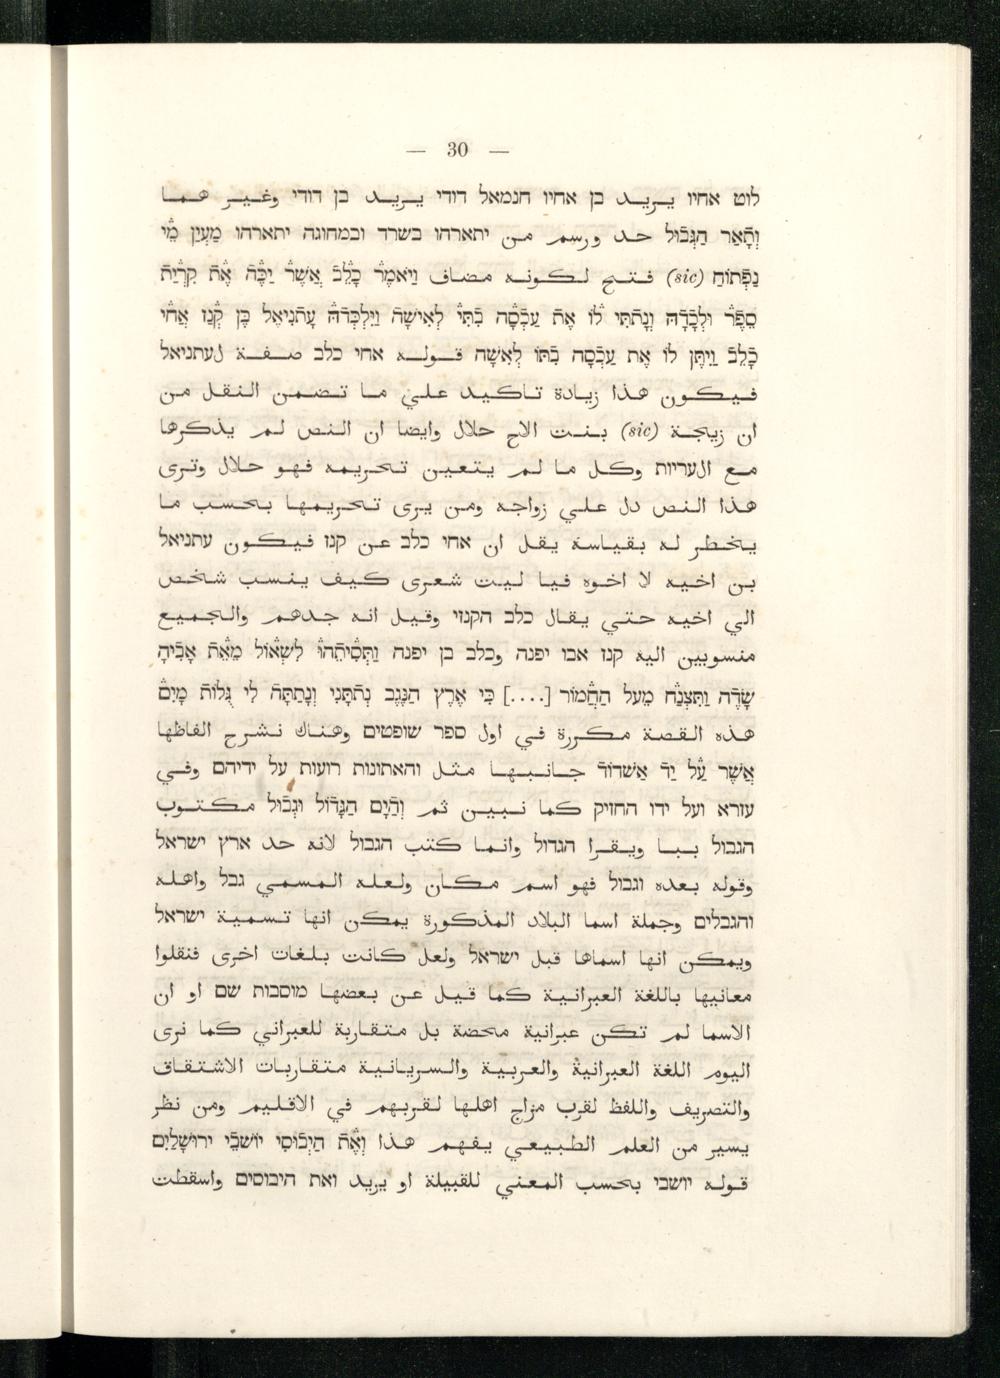 — 30 —
לוט אחיו يريد בן אחיו חנמאל דודי يريد בן דודי وغير هما
וְתָֿאַר הַגְּבֿוּל حد ورسم من יתארהו בשרד ובמחוגה יתארהו מַעְיַן מֵי֔
נַפְתּוֹחַ (sic) فتح لكونه مضاف וַיֹּאמֶר֔ כָּלֵב֔ אֲשֶׁר֔ יַכֶּ֔ה אֶת֔ קִרְיַת֔
סֵפֶר֔ וּלְכָדָהּ וְנָתַתִּי ל֔וֹ אֶת עַכְסָ֔ה בִתִּי֔ לְאִישָׁה וַיִּלְכְּדָהּ֔ עָתְנִיאֵל בֶּן קְנַ֔ז אֲחִי֔
כָלֵב וַיִּתֶּן לוֹ אֶת עַכְסָה בִתּוֹ לְאִשָּׁה قوله אחי כלב صفة لעתניאל
فيكون هذا زيادة تاكيد علي ما تضمن النقل من
ان زيجة (sic) بنت الاخ حلال وايضا ان النص لم يذكرها
مع الעריות وكل ما لم يتعين تحريمه فهو حلال وترى
هذا النص دل علي زواجه ومن يرى تحريمها بحسب ما
يخطر له بقياسه يقل ان אחי כלב عن קנז فيكون עתניאל
بن اخيه لا اخوه فيا ليت شعرى كيف ينسب شخص
الي اخيه حتي يقال כלב הקנזי وقيل انه جدهم والجميع
منسوبين اليه קנז אבו יפנה وכלב בן יפנה וַתְּסִיתֵהוּ לִשְׁאוֹל מֵאֵת אָבִיהָ
שָׂדֶה וַתִּצְנַח מֵעַל הַחֲמוֹר [....] כִּי אֶרֶץ הַנֶּגֶב נְתָתָּנִי וְנָתַתָּה לִי גֻּלּוֹת מָיִם
هذه القصة مكررة في اول ספר שופטים وهناك نشرح الفاظها
אֲשֶׁר עַל יַד אַשְׁדּוֹד جانبها مثل והאתונות רועות על ידיהם وفي
עזרא ועל ידו החזיק كما نبين ثم וְהַיָּם הַגָּדוֹל וּגְבוּל مكتوب
הגבול ببا ويقرا הגדול وانما كتب הגבול لانه حد ארץ ישראל
وقوله بعده וגבול فهو اسم مكان ولعله المسمي גבל واهله
והגבלים وجملة اسما البلاد المذكورة يمكن انها تسمية ישראל
ويمكن انها اسماها قبل ישראל ولعل كانت بلغات اخرى فنقلوا
معانيها باللغة العبرانية كما قيل عن بعضها מוסבות שם او ان
الاسما لم تكن عبرانية محضة بل متقاربة للعبراني كما نرى
اليوم اللغة العبرانية والعربية والسريانية متقاربات الاشتقاق
والتصريف واللفظ لقرب مزاج اهلها لقربهم في الاقليم ومن نظر
يسير من العلم الطبيعي يفهم هذا וְאֶת הַיְבוּסִי יוֹשְׁבֵי יְרוּשָׁלַיִם
قوله יושבי بحسب المعني للقبيلة او يريد ואת היבוסים واسقطت